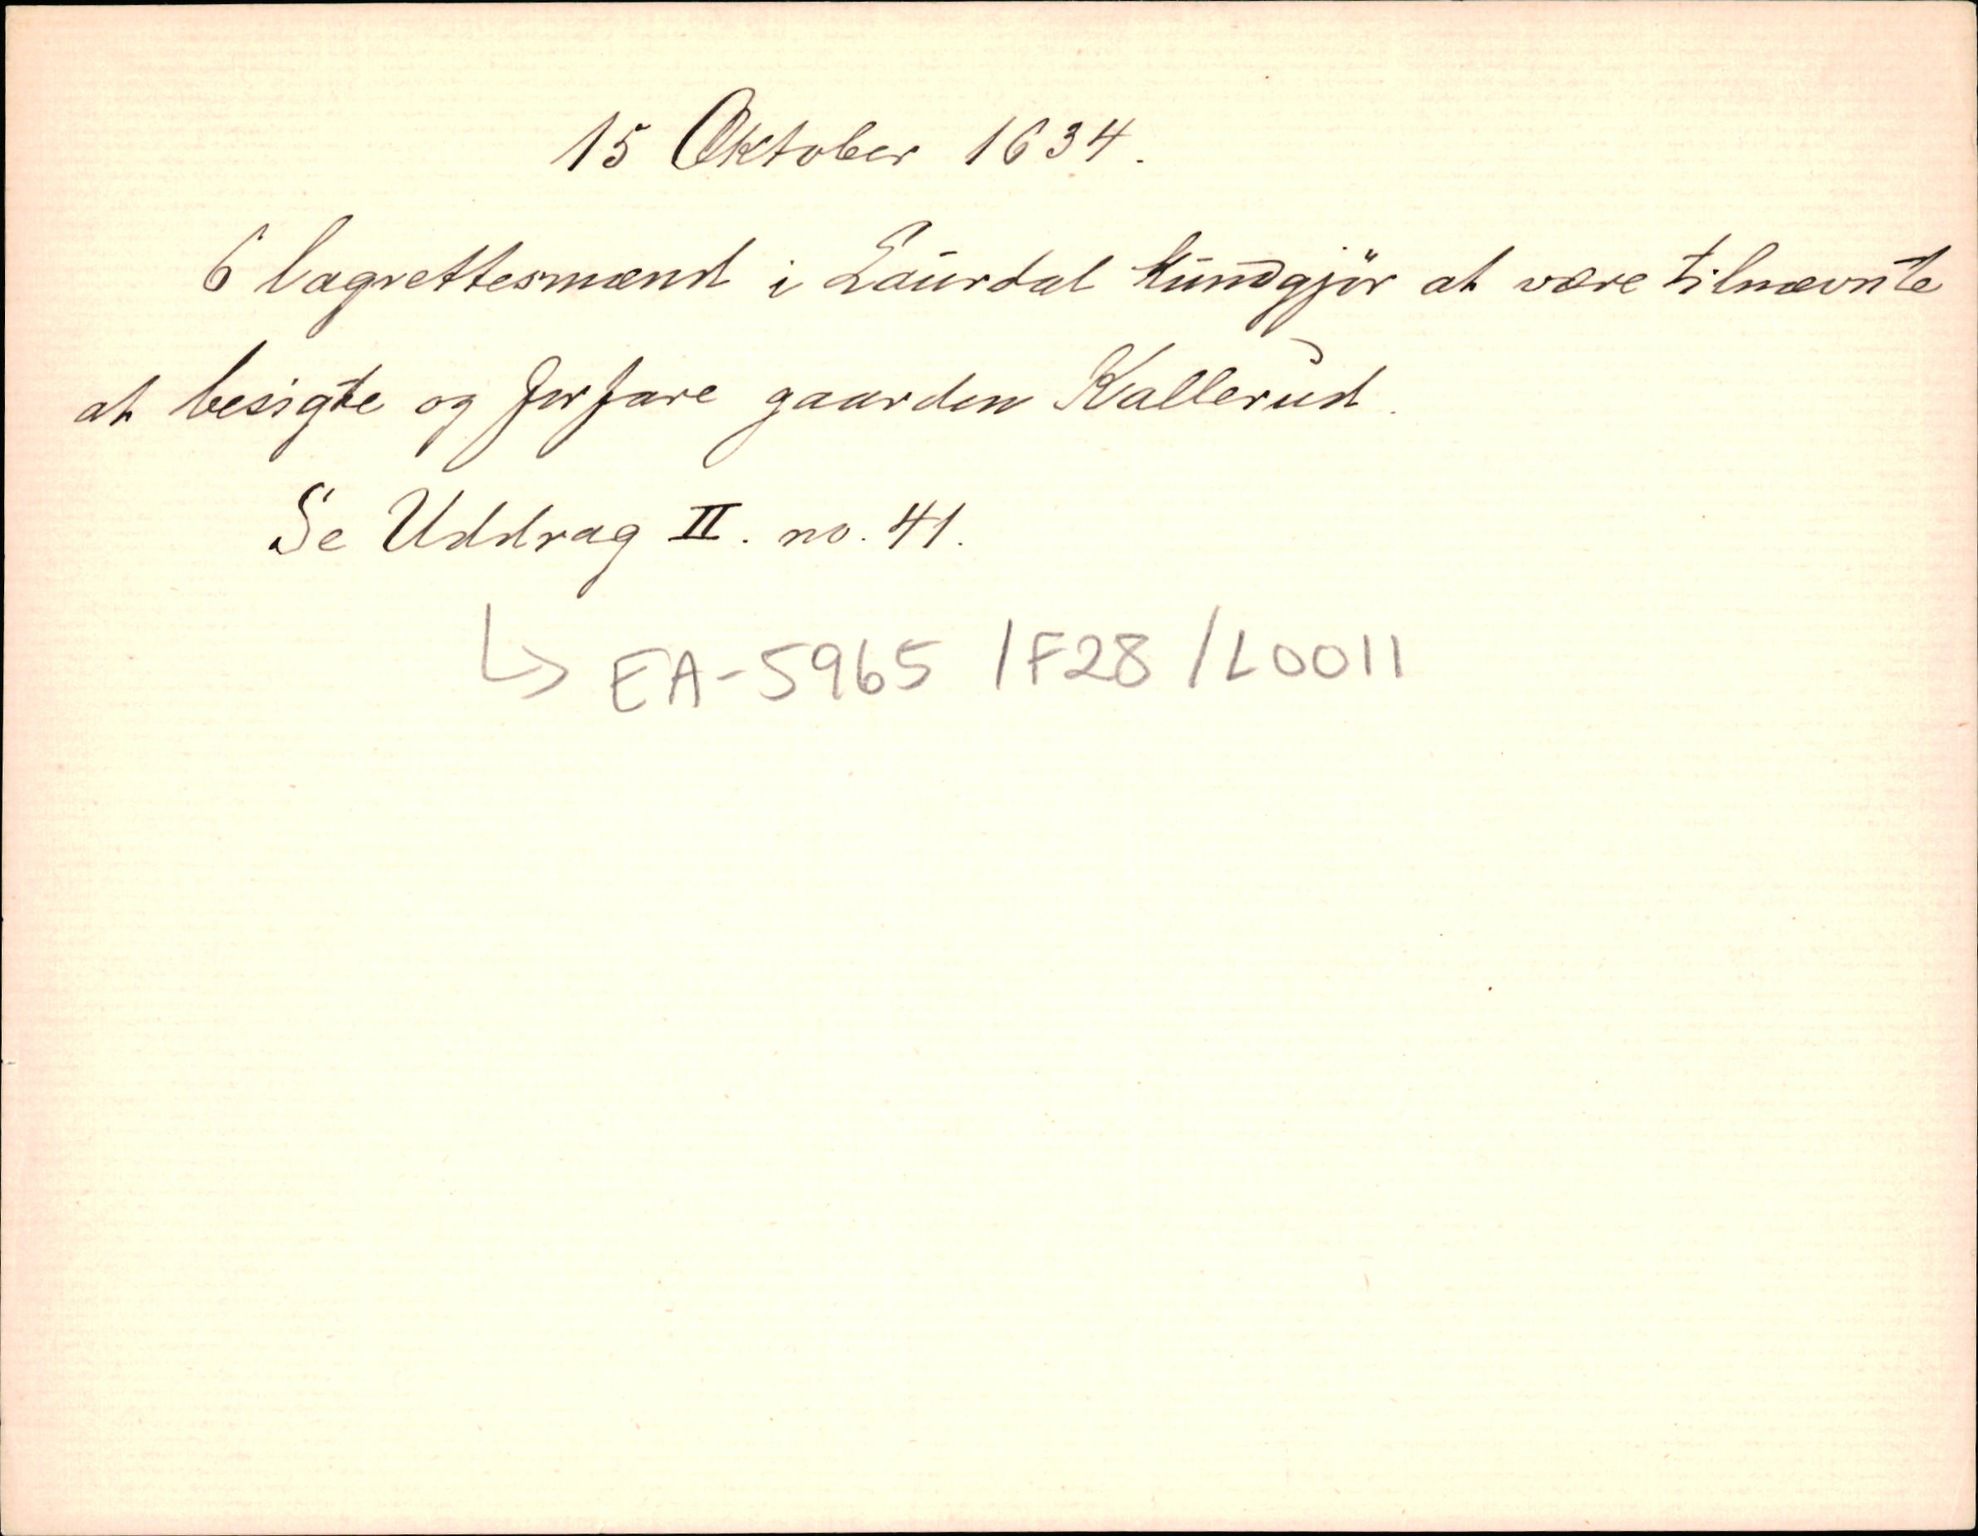 15 Oktober 1634.
6 lagrettesmænd i Laurdal kundgjör at være tilnævnte
at besigte og forfare gaarden Kallerud.
Se Uddrag II. no. 41.
↳ EA-5965 /F28 /L0011